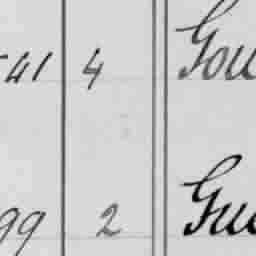 41 4 Gou
99 2 Gue